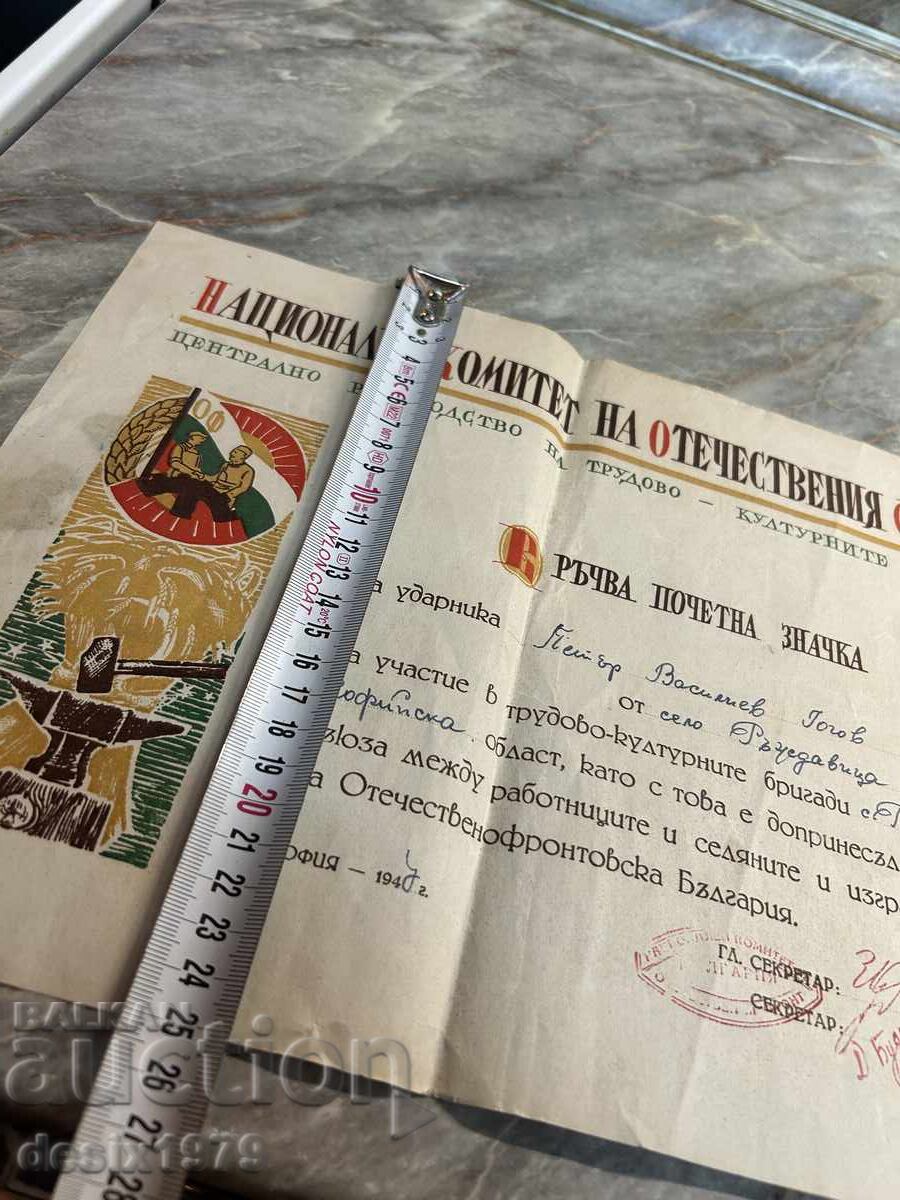 НАЦИОНАЛ КОМИТЕТ НА ОТЕЧЕСТВЕНИЯ
ЦЕНТРАЛНО Р ОДСТВО НА ТРУДОВО – КУЛТУРНИТЕ
ВРЪЧВА ПОЧЕТНА ЗНАЧКА
а ударника Петър Василиев Гогов
от село
а участие в трудово-културните бригади с.
офийска област, като с това е допринесъл
ъюза между работниците и селяните и изгр
а Отечественофронтовска България.
офия – 194 г.
ГЛ. СЕКРЕТАР:
СЕКРЕТАР:
3 4 5 6 7 8 9 10 11 12 13 14 15 16 17 18 19 20 21 22 23 24 25 26 27 28
NYLONCOAT
BALKAN
auction
desix1979